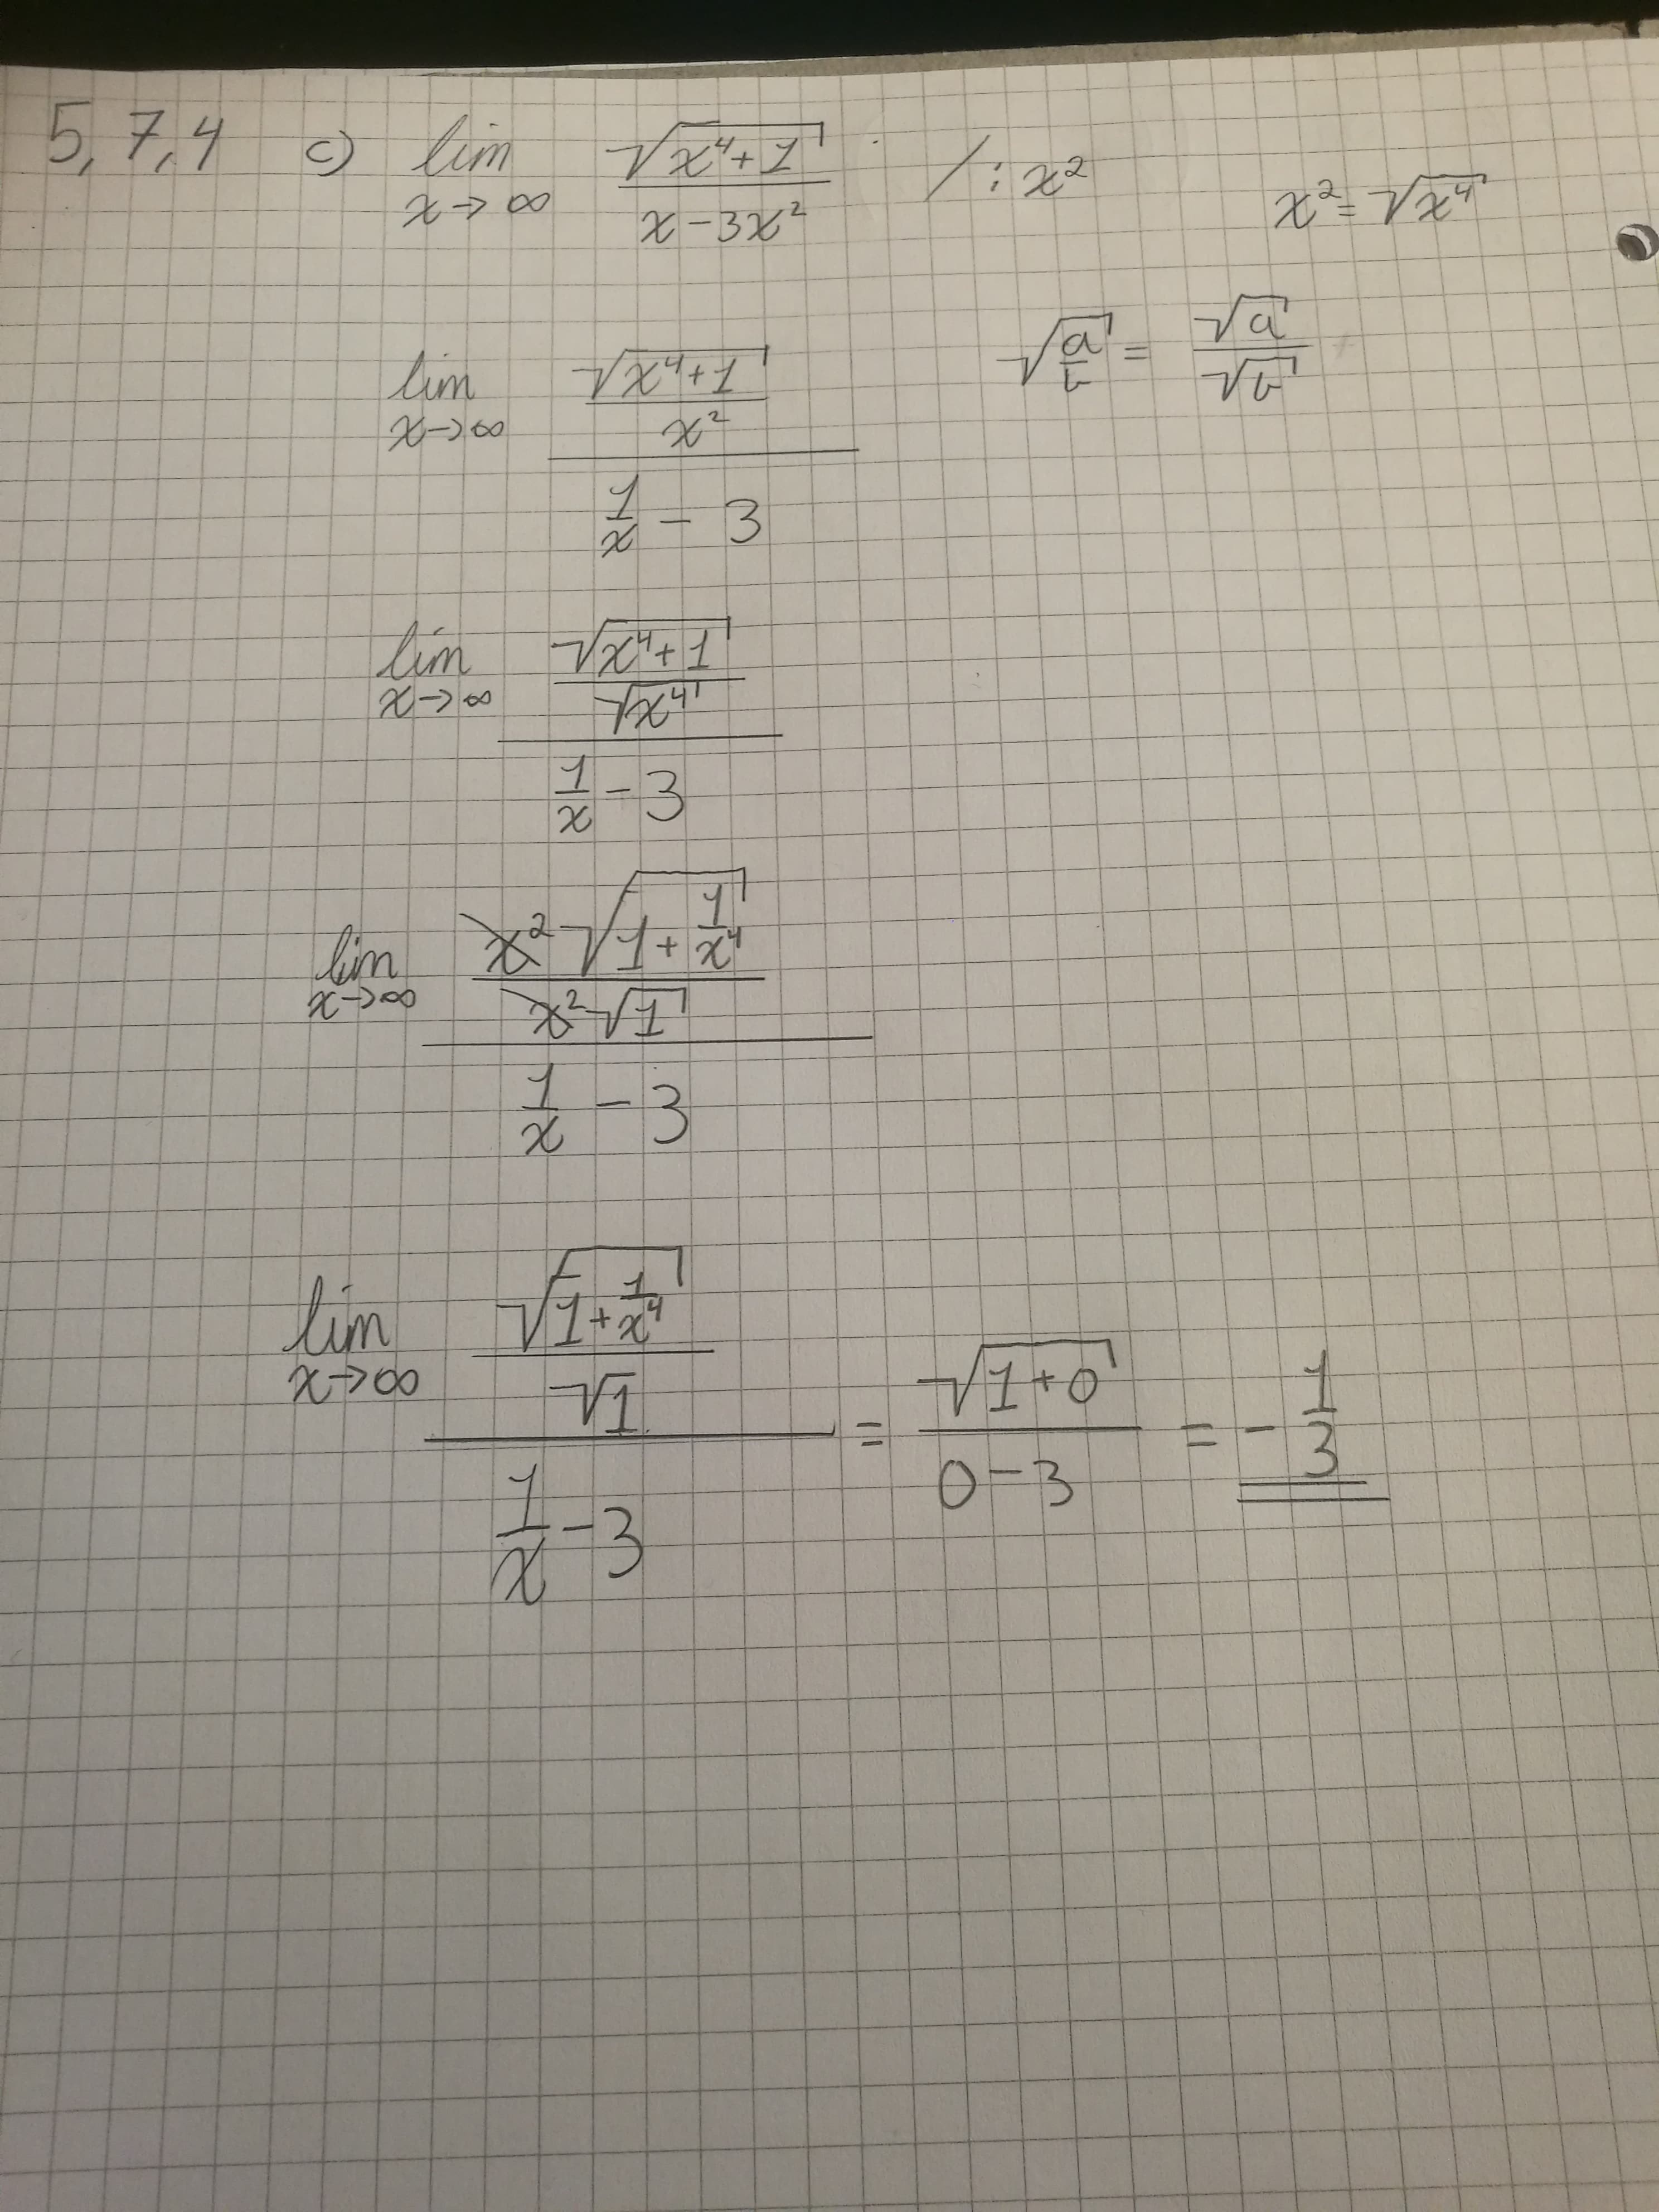 5,7,4 c) lim x→∞ √(x⁴+1) / (x-3x²) /:x² x²=√x⁴
√(a/b) = √a/√b
lim x→∞ (√(x⁴+1) / x²) / (1/x - 3)
lim x→∞ (√(x⁴+1) / √x⁴) / (1/x - 3)
lim x→∞ (x²√(1+1/x⁴) / x²√1) / (1/x - 3)
lim x→∞ (√(1+1/x⁴) / √1) / (1/x - 3) = √(1+0) / (0-3) = -1/3